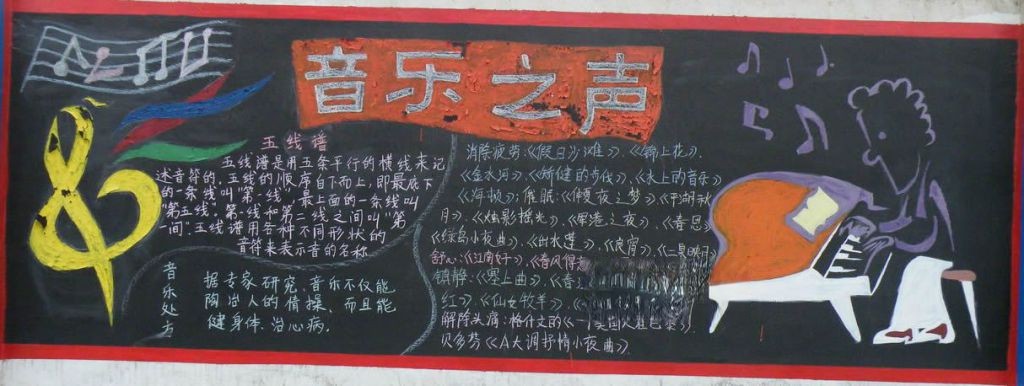 音乐之声
五线谱
五线谱是用五条平行的横线来记
述音符的,五线的顺序自下而上,即最底下
的一条线叫"第一线",最上面的一条线叫
"第五线,第一线和第二线之间叫"第
一间".五线谱用各种不同形状的
音符来表示音的名称
音乐处方
据专家研究,音乐不仅能
陶冶人的情操,而且能
健身体、治心病.
消除疲劳:《假日沙滩》、《锦上花》、
《矫健的步伐》、《水上的音乐》
《海顿》;催眠:《仲夏之梦》《平湖秋
月》、《烛影摇光》、《军港之夜》、《春思》
《绿岛小夜曲》、《出水莲》、《良宵》、《二泉映月》
舒心:《江南好》、《春风得
镇静:《塞上曲》、《春
红》、《仙女牧羊》、
解除头痛:格什文的《一
贝多芬《A大调抒情小夜曲》